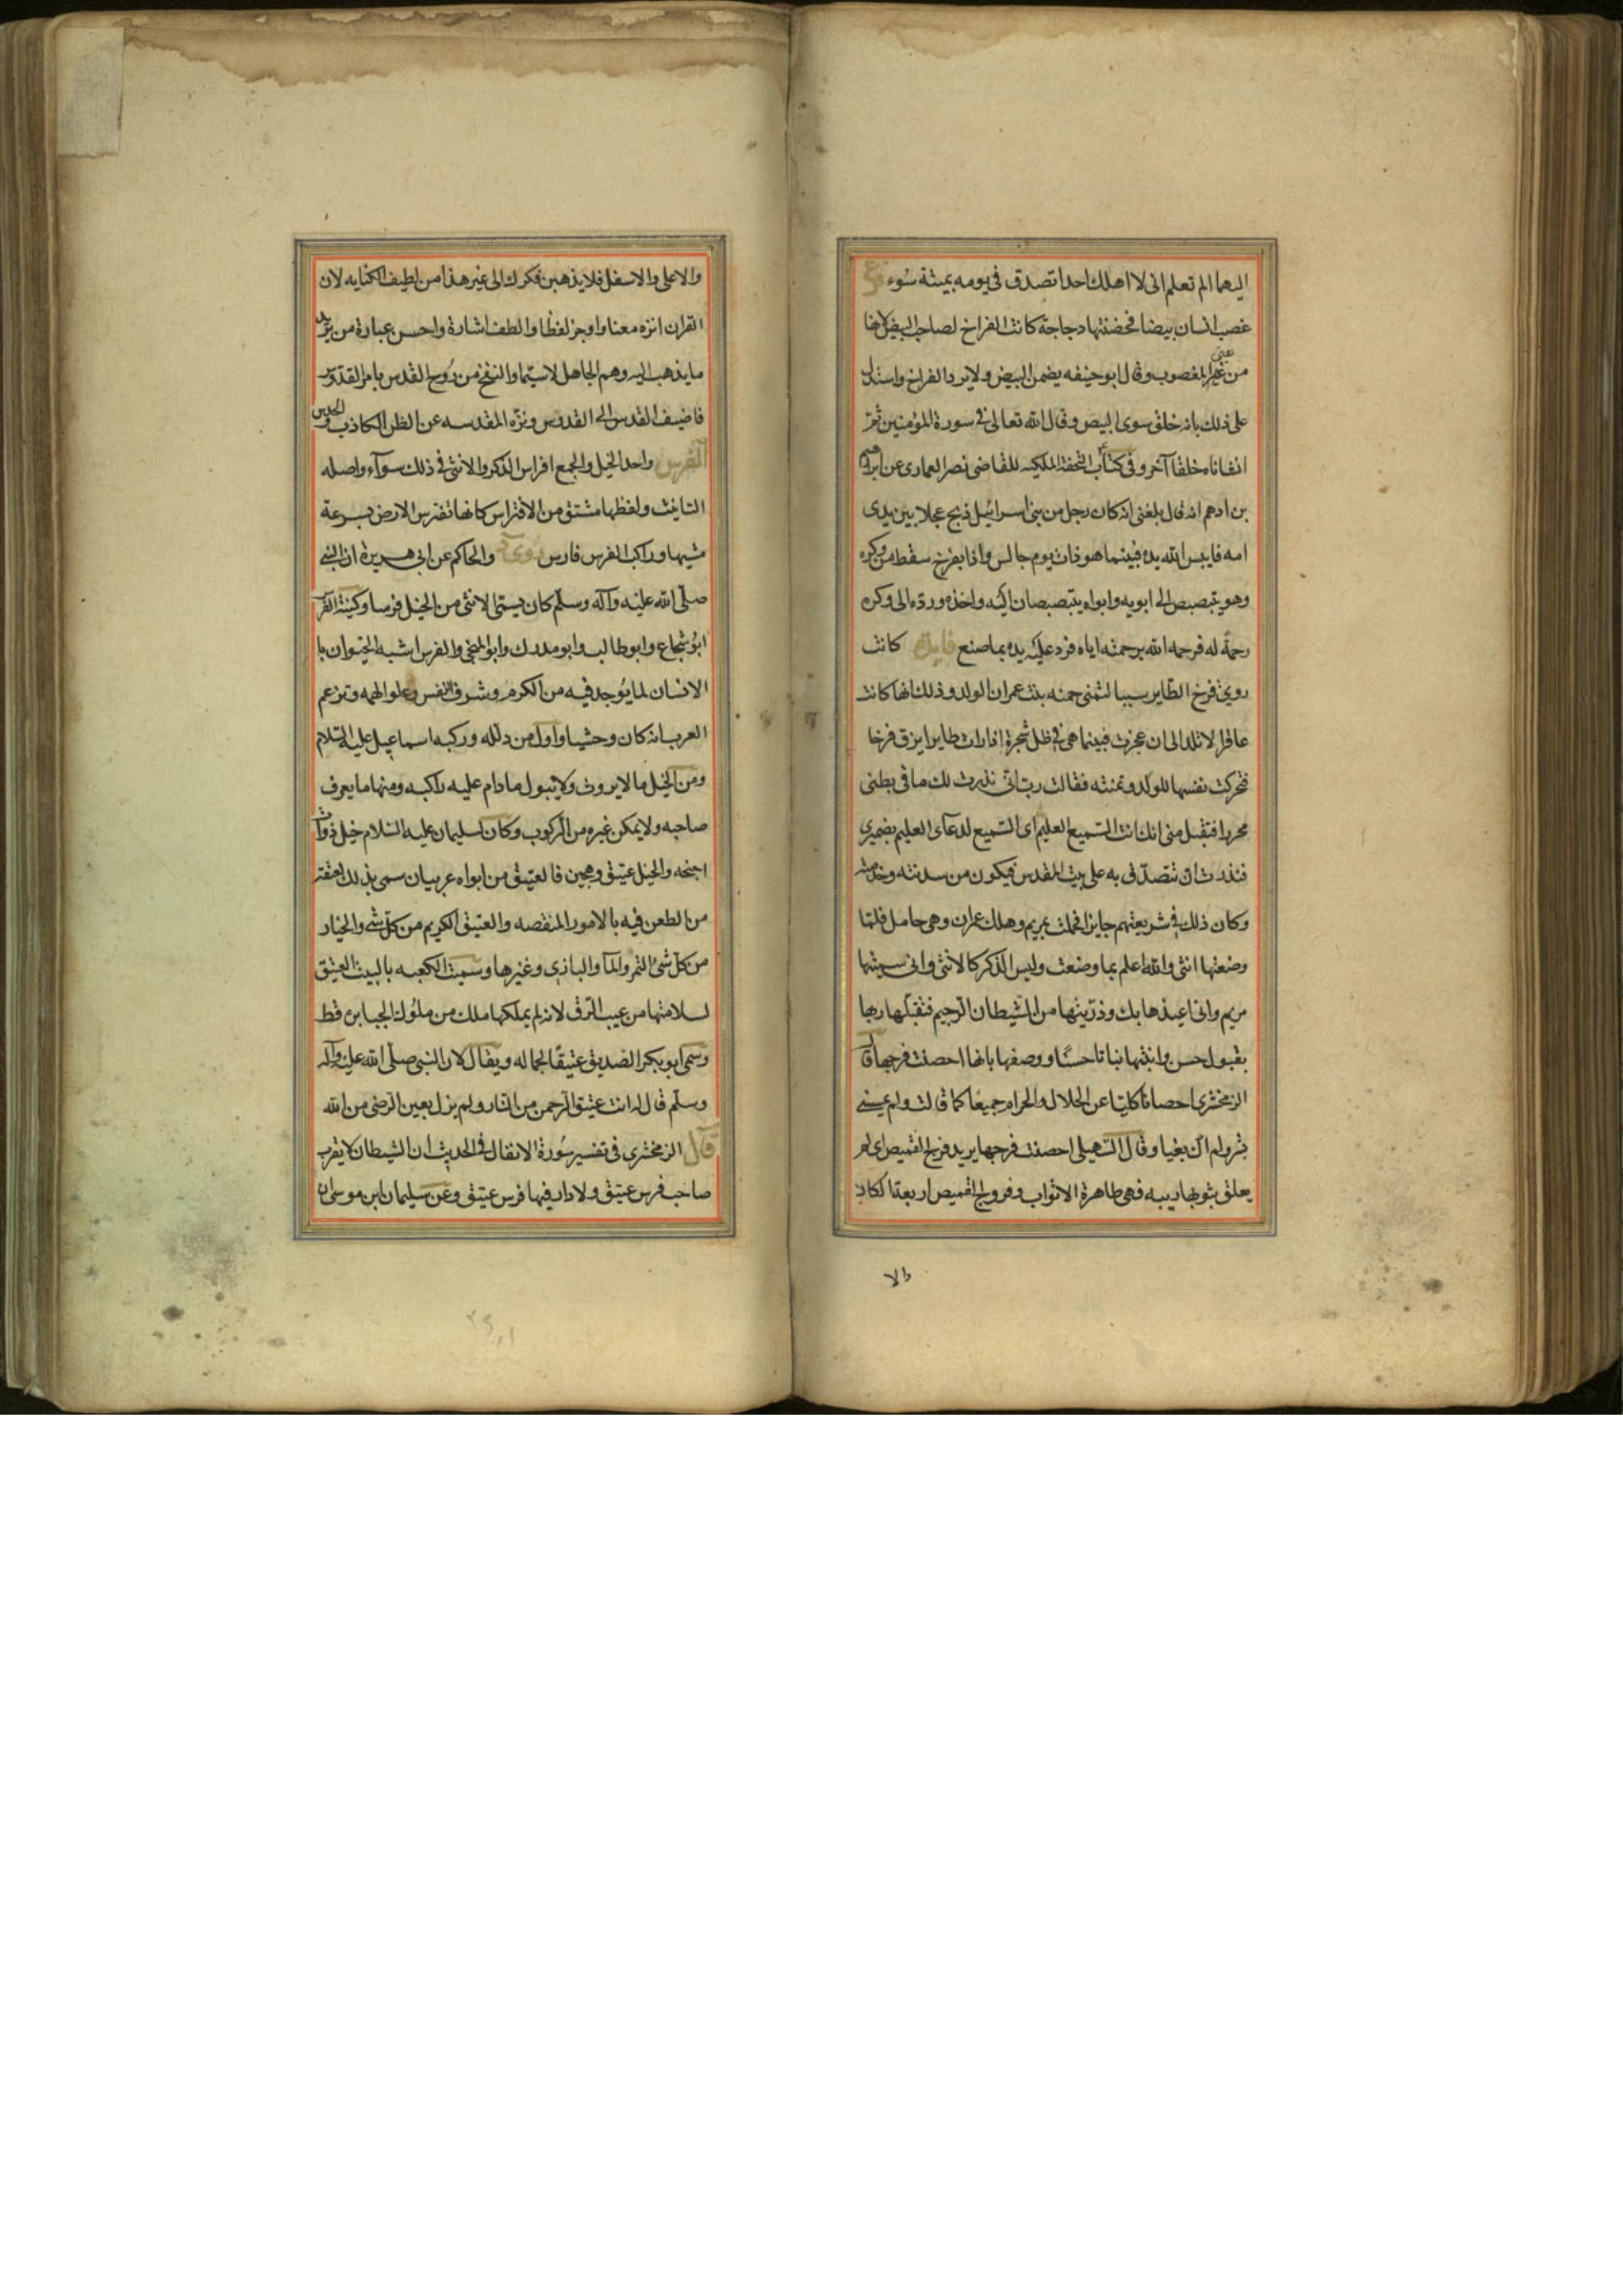 اليهما الم تعلم انى لا اهلك احدا تصدق فى يومه بميتة سُوء فرع
غصب انسان بيضا فحضنتها دجاجة كانت الفراخ لصاحب البيض لانها
من عين المغصوب وقال ابو حنيفه يضمن البيض ولا يرد الفراخ واستدل
على ذلك بانه خلق سوى البيض وقال الله تعالى فى سورة المؤمنين ثم
انشاناه خلقا آخر وفى كتاب التحفة المكيه للقاضى نصر العمارى عن ابرهيم
بن ادهم انه قال بلغنى انه كان رجل من بنى اسرائيل ذبح عجلا بين يدى
امه فايبس الله يده فبينما هو ذات يوم جالس واذا بفرخ سقط من وكره
وهو يتبصبص الى ابويه وابواه يتبصبصان اليه واخذه ورده الى وكره
رحمة له فرحمه الله برحمته اياه فرد عليه يده بما صنع فايدة كانت
روية فرخ الطاير سببا لتمنى حمنه بنت عمران الولد وذلك انها كانت
عاقرا لا تلد الى ان عجزت فبينما هى فى ظل شجرة اذ ارات طايرا يزق فرخا
فتحركت نفسها للولد وتمنته فقالت رب انى نذرت لك ما فى بطنى
محررا فتقبل منى انك انت السميع العليم اى السميع لدعآى العليم بضميرى
فنذرت ان تتصدق به على بيت المقدس فيكون من سدنته وخدمته
وكان ذلك فى شريعتهم جايزا فحملت بمريم وهلك عمران وهى حامل فلما
وضعتها انثى والله اعلم بما وضعت وليس الذكر كالانثى وانى سميتها
مريم وانى اعيذها بك وذريتها من الشيطان الرجيم فتقبلها ربها
بقبول حسن وانبتها نباتا حسنًا ووصفها بانها احصنت فرجها قال
الزمخشرى احصانا كليا عن الحلال والحرام جميعا كما قالت ولم يمسسنى
بشر ولم اك بغيا وقال السهيلى احصنت فرجها يريد فرج القميص اى لم
يعلق بثوبها ريبه فهى طاهرة الاثواب وفروج القميص اربعة الكمان
والا
والاعلى والاسفل فلا يذهبن فكرك الى غير هذا من لطيف الكنايه لان
القران انزه معنا واوجز لفظا والطف اشارة واحسن عبارة من يريد
ما يذهب اليه وهم الجاهل لا سيما والنفخ من رُوح القدس بامر القدوس
فاضيف القدس الى القدوس ونزه المقدسه عن الظن الكاذب والحدس
الفرس واحد الخيل والجمع افراس الذكر والانثى فى ذلك سوآء واصله
التانيث ولفظها مشتق من الافتراس كانها تفترس الارض بسرعة
مشيها وراكب الفرس فارس روى والحاكم عن ابى هريرة ان النبى
صلى الله عليه وآله وسلم كان يسمى الانثى من الخيل فرسا وكنية الفرس
ابو شجاع وابو طالب وابو مدرك وابو المنجى والفرس اشبه الحيوان با
الانسان لما يُوجد فيه من الكرم وشرف النفس وعلو الهمه وتزعم
العرب انه كان وحشيا واول من ذلله وركبه اسماعيل عليه السلام
ومن الخيل ما لا يروث ولا يبول ما دام عليه راكبه ومنها ما يعرف
صاحبه ولا يمكن غيره من الركوب وكان لسليمان عليه السلام خيل ذوات
اجنحه والخيل عتيق وهجين فالعتيق من ابواه عربيان سمى بذلك لعتقه
من الطعن فيه بالامور المنقصه والعتيق الكريم من كل شى والخيار
من كل شئ التمر والمآ والبازى وغيرها وسميت الكعبه بالبيت العتيق
لسلامتها من عيب الرق لانه لم يملكها ملك من ملُوك الجبابره قط
وسمى ابو بكر الصديق عتيقًا لجماله ويقال لان النبى صلى الله عليه وآله
وسلم قال له انت عتيق الرحمن من النار ولم يزل بعين الرضى من الله
قال الزمخشرى فى تفسير سُورة الانفال فى الحديث ان الشيطان لا يقرب
صاحب فرس عتيق ولا دار فيها فرس عتيق وعن سليمان ابن موسى ان